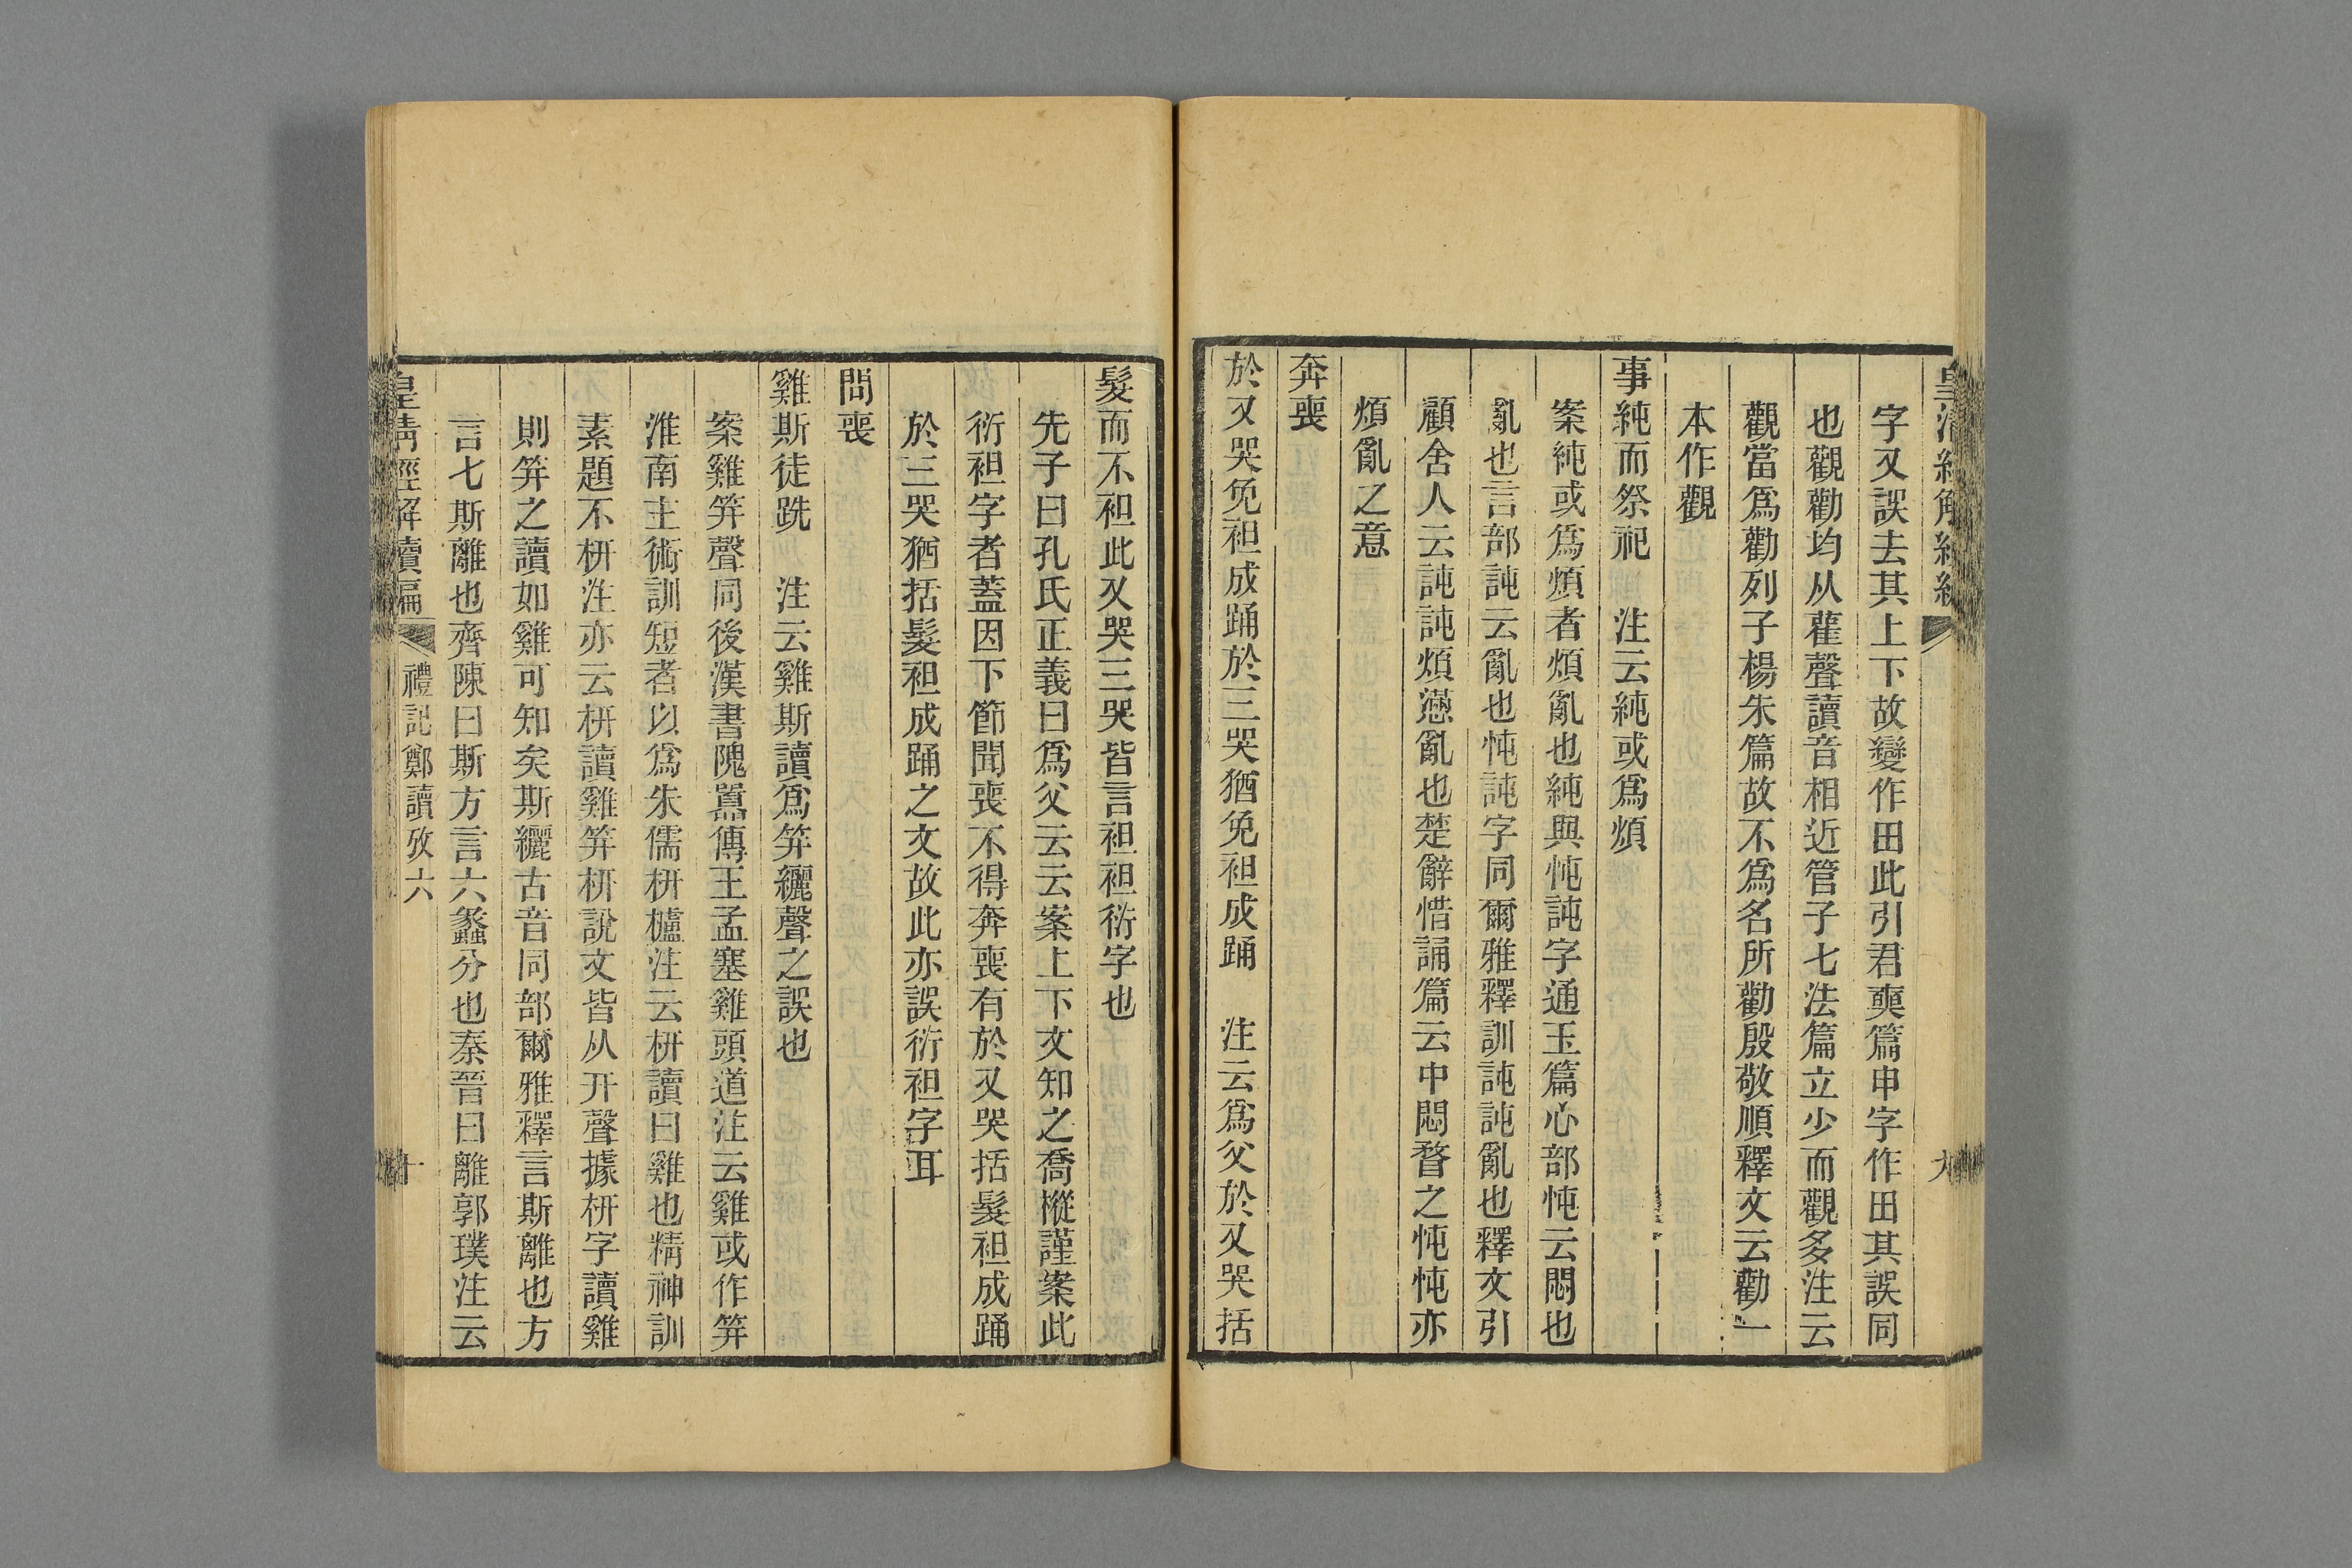 字又誤去其上下故變作田此引君奭篇申字作田其誤同
也觀勸均从雚聲讀音相近管子七法篇立少而觀多注云
觀當爲勸列子楊朱篇故不爲名所勸殷敬順釋文云勸一
本作觀
事純而祭祀　注云純或爲煩
案純或爲煩者煩亂也純與忳訰字通玉篇心部忳云悶也
亂也言部訰云亂也忳訰字同爾雅釋訓訰訰亂也釋文引
顧舍人云訰訰煩懣亂也楚辭惜誦篇云中悶瞀之忳忳亦
煩亂之意
奔喪
於又哭免袒成踊於三哭猶免袒成踊　注云爲父於又哭括
髮而不袒此又哭三哭皆言袒袒衍字也
先子曰孔氏正義曰爲父云云案上下文知之喬樅謹案此
衍袒字者蓋因下節聞喪不得奔喪有於又哭括髮袒成踊
於三哭猶括髮袒成踊之文故此亦誤衍袒字耳
問喪
雞斯徒跣　注云雞斯讀爲笄纚聲之誤也
案雞笄聲同後漢書隗囂傳王孟塞雞頭道注云雞或作笄
淮南主術訓短者以爲朱儒枅櫨注云枅讀曰雞也精神訓
素題不枅注亦云枅讀雞笄枅說文皆从幵聲據枅字讀雞
則笄之讀如雞可知矣斯纚古音同部爾雅釋言斯離也方
言七斯離也齊陳曰斯方言六蠡分也秦晉曰離郭璞注云
皇清經解續編　禮記鄭讀攷六　十